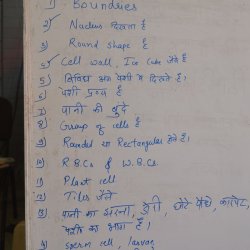 1) Boundries
2) Nucleus दिखता है
3) Round shape है
4) Cell wall, Ice Cube जैसे है
5) विभिन्न अंग पेशी में दिखते है।
6) पेशी द्रव्य है
7) पानी की बुँदे
8) Group of cells है
9) Rounded या Rectangular होते है।
10) R.B.Cs & W.B.Cs.
11) Plant cell
12) Tiles जैसे
13) पानी का झरना, छोटे पौधे, कारपेट,
है।
sperm cell, larvae